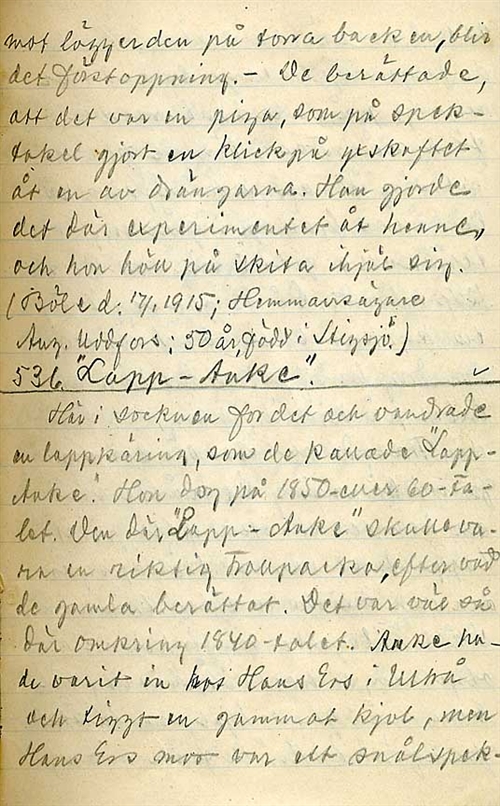 mot läggerden på torra backen, blir
det förstoppning. – De berättade,
att det var en piga, som på spek-
takel gjort en klick på yxskaftet
åt en av drängarna. Han gjorde
det där experimentet åt henne,
och hon höll på skita ihjäl sig.
(Böle d. 17/1 1915; Hemmansägare
Aug. Uddfors; 50 år, född i Stigsjö.)
536. "Lapp-Anke".
Här i socknen for det och vandrade
en lappkäring, som de kallade "Lapp-
Anke." Hon dog på 1850- eller 60-ta-
let. Den där "Lapp-Anke" skulle va-
ra en riktig trollpacka, efter vad
de gamla berättat. Det var väl så
där omkring 1840-talet. Anke ha-
de varit in hos Hans Ers i Utbå
och tiggt en gammal kjol, men
Hans Ers mor var ett snålspek-